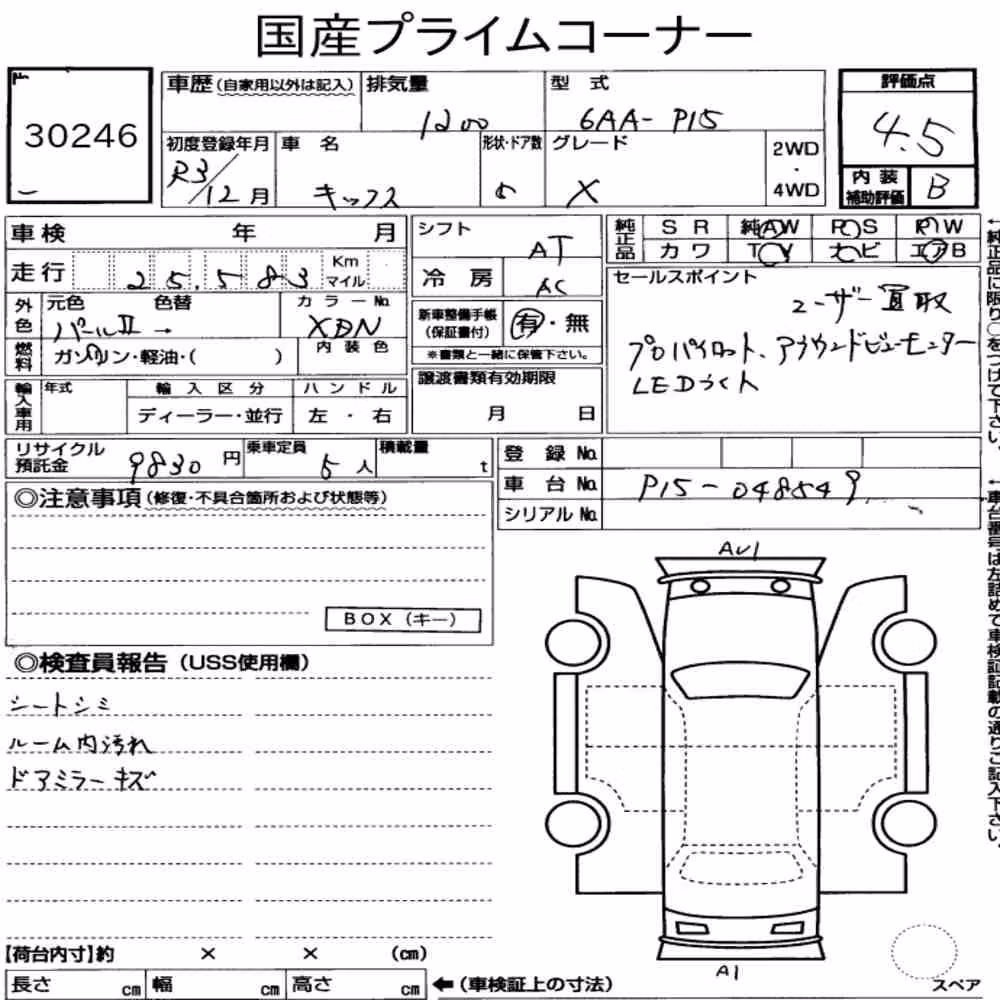 国産プライムコーナー
30246
車歴(自家用以外は記入)
排気量
1200
型 式
6AA-P15
評価点
4.5
初度登録年月
R3/12月
車 名
キックス
形状・ドア数
5
グレード
X
2WD
・
4WD
内装
補助評価
B
車検 年 月
シフト
AT
純正品
SR 純AW PS PW
カワ TV ナビ エアB
走行 25,583 Km
マイル
冷房
AC
セールスポイント
ユーザー買取
プロパイロット、アラウンドビューモニター
LEDライト
外色
元色 色替
パールⅡ→
カラーNo.
XBN
新車整備手帳
(保証書付)
有・無
※書類と一緒に保管下さい。
燃料
ガソリン・軽油・( )
内装色
輸入車用
年式
輸入区分
ハンドル
ディーラー・並行
左・右
譲渡書類有効期限
月 日
リサイクル
預託金
9830円
乗車定員
5人
積載量
t
登録No.
車台No.
P15-048549
シリアルNo.
◎注意事項(修復・不具合箇所および状態等)
BOX(キー)
◎検査員報告(USS使用欄)
シートシミ
ルーム内汚れ
ドアミラーキズ
AU1
A1
【荷台内寸】約 × × (cm)
長さ cm 幅 cm 高さ cm
←(車検証上の寸法)
スペア
←純正品に限り○をつけて下さい。
←車台番号は左詰めで車検証記載の通りご記入下さい。